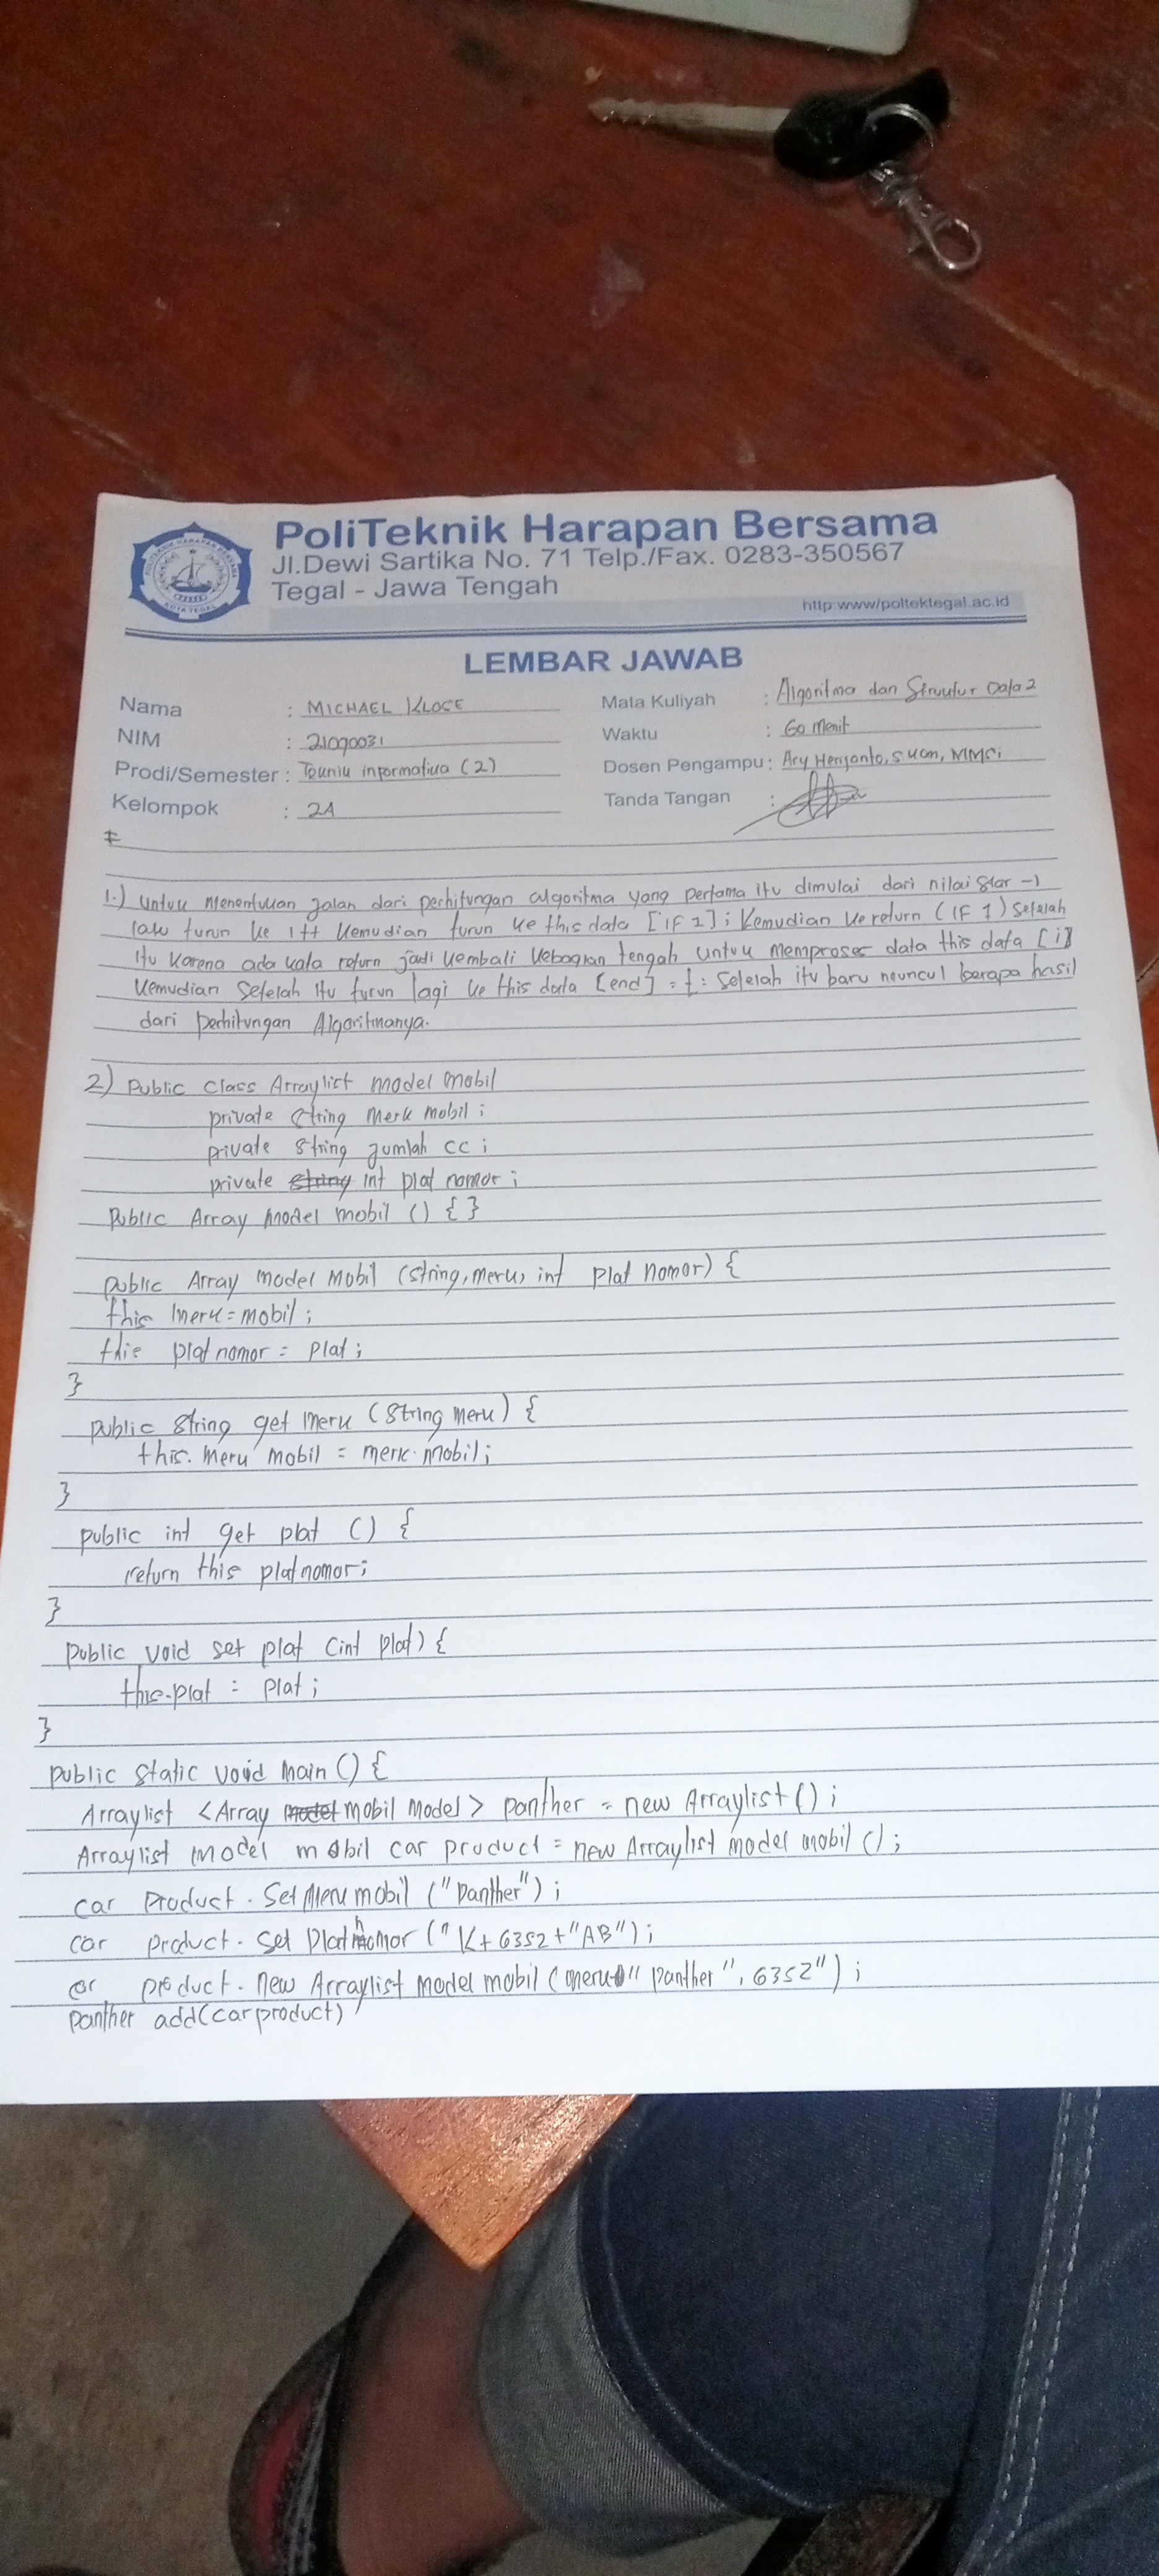 PoliTeknik Harapan Bersama
Jl.Dewi Sartika No. 71 Telp./Fax. 0283-350567
Tegal - Jawa Tengah
http:www/poltektegal.ac.id
LEMBAR JAWAB
Nama : MICHAEL KLOSE
NIM : 21090031
Prodi/Semester : Teuniu informatiua (2)
Kelompok : 2A
Mata Kuliyah : Algoritma dan Struutur Data 2
Waktu : 60 Menit
Dosen Pengampu : Ary Heryanto, MMSi
Tanda Tangan :
1.) untuu Menentuuan Jalan dari perhitungan algoritma yang pertama itu dimulai dari nilai Star -1
lalu turun ke 1ff uemudian turun ue this data [if 1] ; Kemudian ue return (IF 1) Setelah
itu Karena ada uata return jadi uembali uebagian tengah untuu memproses data this data [i]
uemudian setelah itu turun lagi ue this data [end] = t : Setelah itu baru muncul berapa hasil
dari perhitungan Algoritmanya.
2) Public Class Arraylist model mobil
private String Merk mobil ;
private String Jumlah cc ;
private string int plat nomor ;
Public Array Model mobil () { }
public Array model Mobil (string, meru, int Plat nomor) {
this meru = mobil ;
this plat nomor = plat ;
}
public string get meru (String meru) {
this. meru mobil = merk. mobil ;
}
public int get plat () {
return this plat nomor ;
}
public void set plat (int plat) {
this.plat = plat ;
}
public static void Main () {
Arraylist <Array model mobil Model> panther = new Arraylist () ;
Arraylist model mobil car product = new Arraylist model mobil () ;
car product. Set Meru mobil ("panther") ;
car product. set Plat nomor ("K+ 6352 + "AB") ;
or product. new Arraylist model mobil (meru "panther", 6352") ;
panther add(car product)